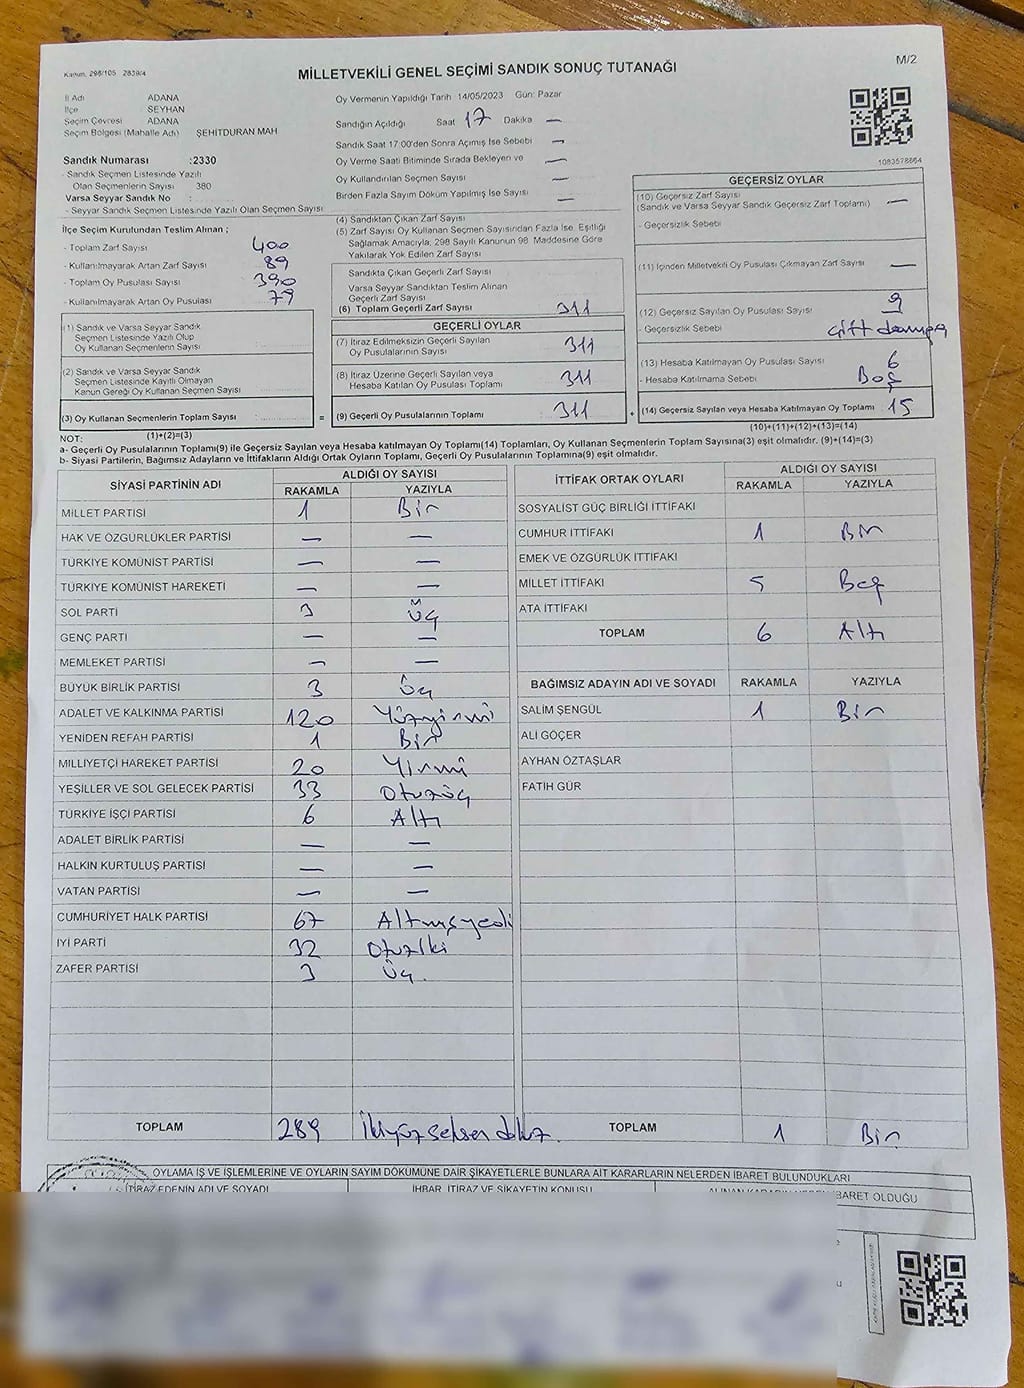 Kanun, 298/105 2839/4
MİLLETVEKİLİ GENEL SEÇİMİ SANDIK SONUÇ TUTANAĞI
M/2
İl Adı ADANA
İlçe SEYHAN
Seçim Çevresi ADANA
Seçim Bölgesi (Mahalle Adı) ŞEHİTDURAN MAH
Sandık Numarası :2330
- Sandık Seçmen Listesinde Yazılı
Olan Seçmenlerin Sayısı 380
Varsa Seyyar Sandık No :
- Seyyar Sandık Seçmen Listesinde Yazılı Olan Seçmen Sayısı
Oy Vermenin Yapıldığı Tarih 14/05/2023 Gün: Pazar
Sandığın Açıldığı Saat 17 Dakika —
Sandık Saat 17:00'den Sonra Açımış İse Sebebi —
Oy Verme Saati Bitiminde Sırada Bekleyen ve —
Oy Kullandırılan Seçmen Sayısı —
Birden Fazla Sayım Döküm Yapılmış İse Sayısı —
1083578864
İlçe Seçim Kurulundan Teslim Alınan ;
- Toplam Zarf Sayısı 400
- Kullanılmayarak Artan Zarf Sayısı 89
- Toplam Oy Pusulası Sayısı 390
- Kullanılmayarak Artan Oy Pusulası 79
(1) Sandık ve Varsa Seyyar Sandık
Seçmen Listesinde Yazılı Olup
Oy Kullanan Seçmenlerin Sayısı
(2) Sandık ve Varsa Seyyar Sandık
Seçmen Listesinde Kayıtlı Olmayan
Kanun Gereği Oy Kullanan Seçmen Sayısı
(3) Oy Kullanan Seçmenlerin Toplam Sayısı =
(1)+(2)=(3)
(4) Sandıktan Çıkan Zarf Sayısı
(5) Zarf Sayısı Oy Kullanan Seçmen Sayısından Fazla İse, Eşitliği
Sağlamak Amacıyla, 298 Sayılı Kanunun 98. Maddesine Göre
Yakılarak Yok Edilen Zarf Sayısı
Sandıkta Çıkan Geçerli Zarf Sayısı
Varsa Seyyar Sandıktan Teslim Alınan
Geçerli Zarf Sayısı
(6) Toplam Geçerli Zarf Sayısı 311
GEÇERLİ OYLAR
(7) İtiraz Edilmeksizin Geçerli Sayılan
Oy Pusulalarının Sayısı 311
(8) İtiraz Üzerine Geçerli Sayılan veya
Hesaba Katılan Oy Pusulası Toplamı 311
(9) Geçerli Oy Pusulalarının Toplamı 311 +
GEÇERSİZ OYLAR
(10) Geçersiz Zarf Sayısı
(Sandık ve Varsa Seyyar Sandık Geçersiz Zarf Toplamı) —
- Geçersizlik Sebebi
(11) İçinden Milletvekili Oy Pusulası Çıkmayan Zarf Sayısı —
(12) Geçersiz Sayılan Oy Pusulası Sayısı 9
- Geçersizlik Sebebi çift damga
(13) Hesaba Katılmayan Oy Pusulası Sayısı 6
- Hesaba Katılmama Sebebi Boş
(14) Geçersiz Sayılan veya Hesaba Katılmayan Oy Toplamı 15
(10)+(11)+(12)+(13)=(14)
NOT:
a- Geçerli Oy Pusulalarının Toplamı(9) ile Geçersiz Sayılan veya Hesaba katılmayan Oy Toplamı(14) Toplamları, Oy Kullanan Seçmenlerin Toplam Sayısına(3) eşit olmalıdır. (9)+(14)=(3)
b- Siyasi Partilerin, Bağımsız Adayların ve İttifakların Aldığı Ortak Oyların Toplamı, Geçerli Oy Pusulalarının Toplamına(9) eşit olmalıdır.
SİYASİ PARTİNİN ADI ALDIĞI OY SAYISI
RAKAMLA YAZIYLA
MİLLET PARTİSİ 1 Bir
HAK VE ÖZGÜRLÜKLER PARTİSİ — —
TÜRKİYE KOMÜNİST PARTİSİ — —
TÜRKİYE KOMÜNİST HAREKETİ — —
SOL PARTİ 3 Üç
GENÇ PARTİ — —
MEMLEKET PARTİSİ — —
BÜYÜK BİRLİK PARTİSİ 3 Üç
ADALET VE KALKINMA PARTİSİ 120 Yüzyirmi
YENİDEN REFAH PARTİSİ 1 Bir
MİLLİYETÇİ HAREKET PARTİSİ 20 Yirmi
YEŞİLLER VE SOL GELECEK PARTİSİ 33 Otuzüç
TÜRKİYE İŞÇİ PARTİSİ 6 Altı
ADALET BİRLİK PARTİSİ — —
HALKIN KURTULUŞ PARTİSİ — —
VATAN PARTİSİ — —
CUMHURİYET HALK PARTİSİ 67 Altmışyedi
İYİ PARTİ 32 Otuziki
ZAFER PARTİSİ 3 Üç.
TOPLAM 289 İkiyüz seksen dokuz.
İTTİFAK ORTAK OYLARI ALDIĞI OY SAYISI
RAKAMLA YAZIYLA
SOSYALİST GÜÇ BİRLİĞİ İTTİFAKI
CUMHUR İTTİFAKI 1 Bir
EMEK VE ÖZGÜRLÜK İTTİFAKI
MİLLET İTTİFAKI 5 Beş
ATA İTTİFAKI
TOPLAM 6 Altı
BAĞIMSIZ ADAYIN ADI VE SOYADI RAKAMLA YAZIYLA
SALİM ŞENGÜL 1 Bir
ALİ GÖÇER
AYHAN ÖZTAŞLAR
FATİH GÜR
TOPLAM 1 Bir
OYLAMA İŞ VE İŞLEMLERİNE VE OYLARIN SAYIM DÖKÜMÜNE DAİR ŞİKAYETLERLE BUNLARA AİT KARARLARIN NELERDEN İBARET BULUNDUKLARI
İTİRAZ EDENİN ADI VE SOYADI İHBAR, İTİRAZ VE ŞİKAYETİN KONUSU ALINAN KARARIN NEDEN İBARET OLDUĞU